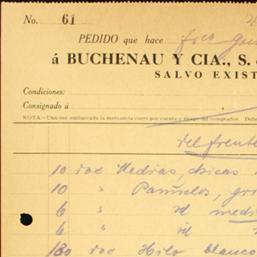 No. 61
PEDIDO que hace
á BUCHENAU Y CIA., S.
SALVO EXIST
Condiciones:
Consignado á
NOTA.—Una vez embarcada la mercancía corre por cuenta y riesgo del comprador. Debe
del frente
10 doc Medias, chicas
10 " Pañuelos, gr
6 " id med
6 " id
130 doc Hilo blanco